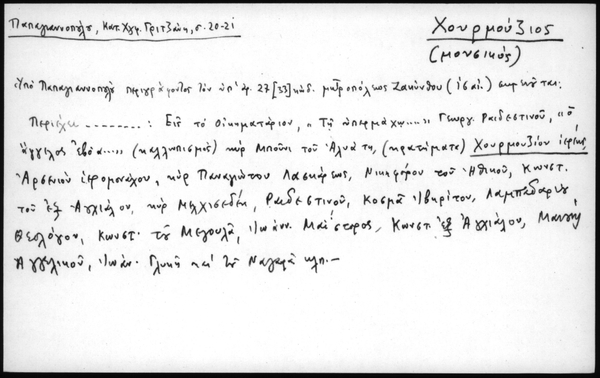 Παπαγιαννοπούλου, Κατ. Χγφ. Γριτζάνη, σ. 20-21
Χουρμούζιος
(μουσικός)
Ὑπὸ Παπαγιαννοπούλου περιγράφοντος τὸν ὑπ' ἀρ. 27 [33] κώδ. μητροπόλεως Ζακύνθου (ἰσαὶ.) σημειοῦται:
Περιέχει ........: Εἰς τὸ Οἰκηματάριον, "Τῇ ὑπερμάχῳ..." Γεωργ. Ραιδεστινοῦ, "ὁ
ἄγγελος ἐβόα..." (καλλωπισμὸς) κὺρ Μπούνι τοῦ Ἀλυάτη, (κρατήματα) Χουρμουζίου ἱερέως
Ἀρσενίου ἱερομονάχου, κὺρ Παναγιώτου Λασκάρεως, Νικηφόρου τοῦ Ἠθικοῦ, Κωνστ.
τοῦ ἐξ Ἀγχιάλου, κὺρ Μελχισεδέκ, Ραιδεστινοῦ, Κοσμᾶ Ἰβηρίτου, Λαμπαδαρίου
Θεολόγου, Κωνστ. τοῦ Μεγουλᾶ, Ἰωάνν. Μαΐστορος, Κωνστ. ἐξ Ἀγχιάλου, Μανουὴλ
Ἀγγελικοῦ, Ἰωάν. Γλυκῆ καὶ τοῦ Ναγαρᾶ κλπ.—